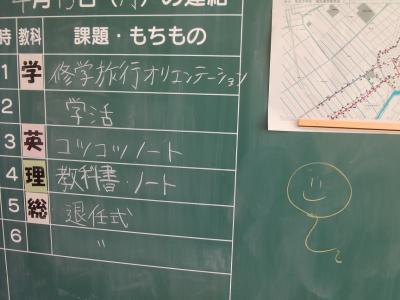 月 日（月）の連絡
時 教科 課題・もちもの
1 学 修学旅行オリエンテーション
2 学活
3 英 コツコツノート
4 理 教科書・ノート
5 総 退任式
6 〃